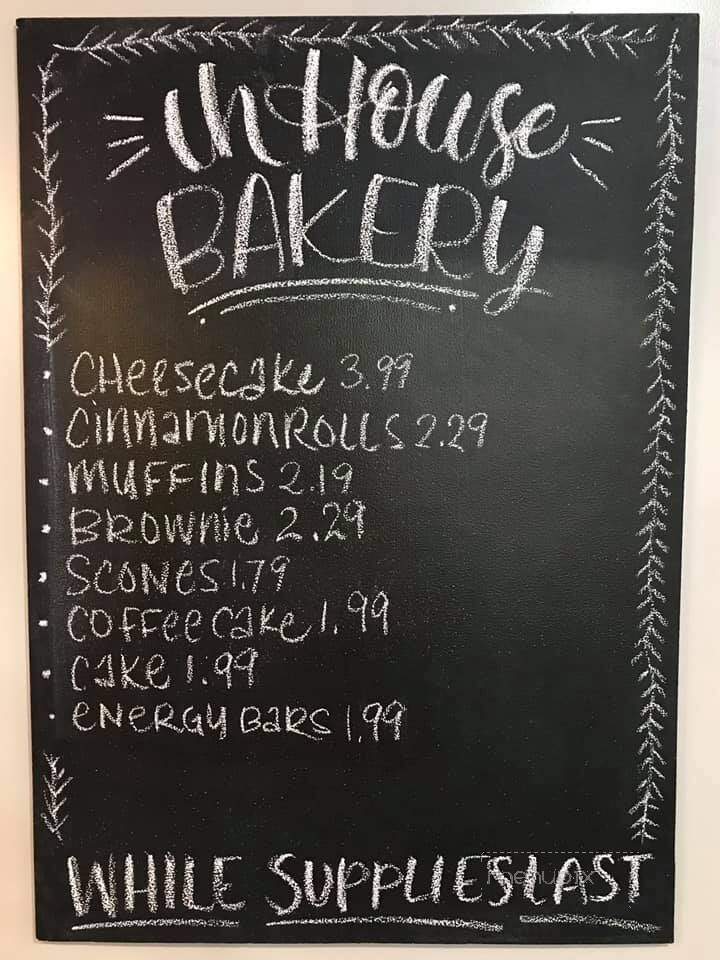 in House
BAKERy
• CHeesecake 3.99
• cinnamon Rolls 2.29
• MUFFINS 2.19
• BROWNie 2.29
• SCONES 1.79
• COFFee cake 1.99
• cake 1.99
• eNERGY BARS 1.99
WHILE SUPPLIES LAST
menupix